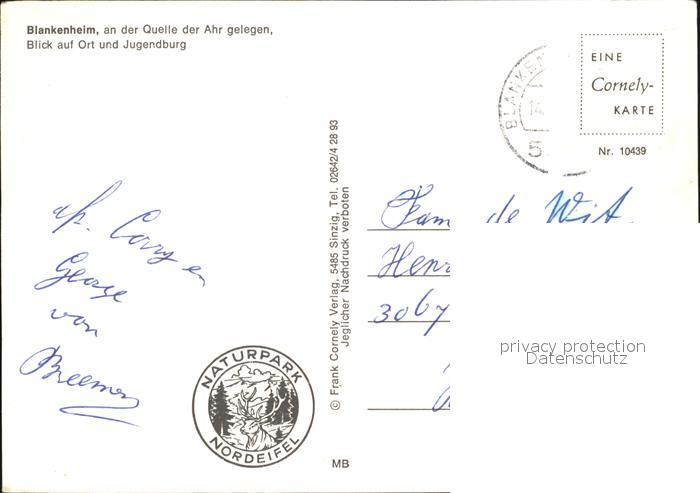 Blankenheim, an der Quelle der Ahr gelegen,
Blick auf Ort und Jugendburg
BLANKEN
14.
5
EINE
Cornely-
KARTE
Nr. 10439
© Frank Cornely Verlag, 5485 Sinzig, Tel. 02642/4 28 93
Jeglicher Nachdruck verboten
afs. Corry en
George
van
Breemen
Fam de Wit
Henr
3067
privacy protection
Datenschutz
NATURPARK
NORDEIFEL
MB